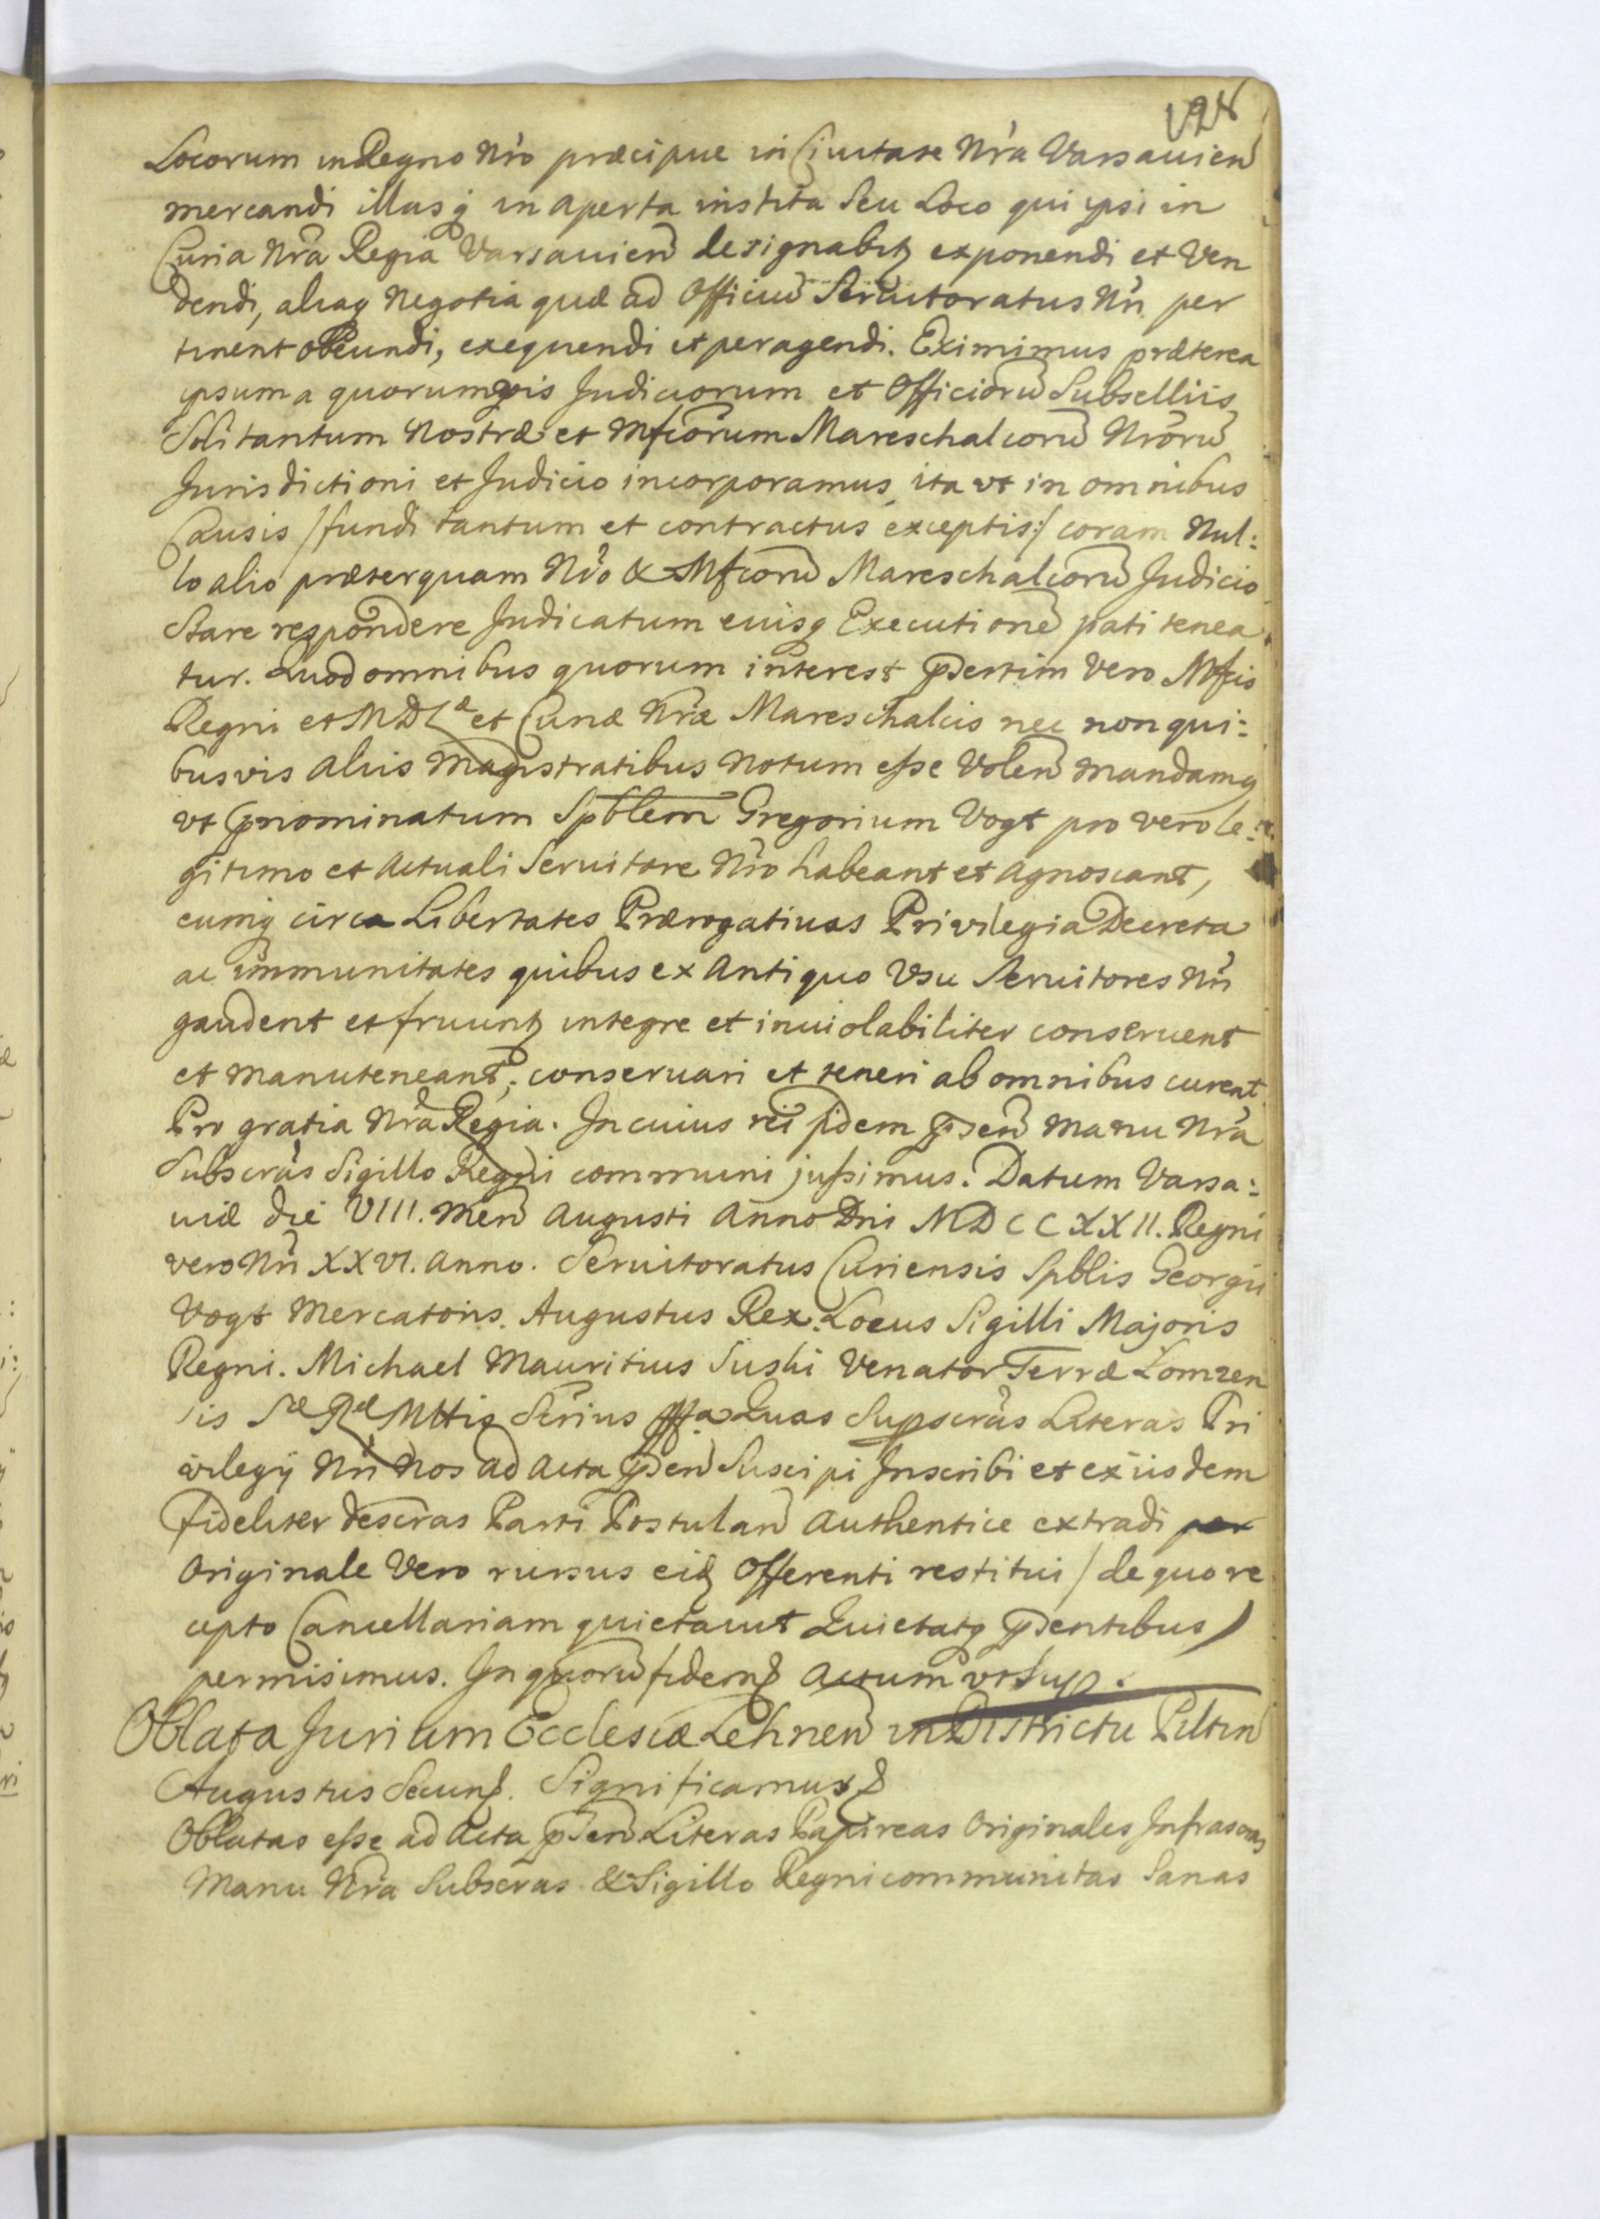 Locorum in Regno Nro præcipue in Civitate Nra Varsavien
mercandi illasq in aperta instita Seu Loco qui ipsi in
Curia Nra Regia Varsavien designabitz exponendi et Ven
dendi, aliaq Negotia quæ ad Officiu Servitoratus Nri per
tinent obeundi, exequendi et peragendi. Eximimus præterea
ipsum a quorumvis Judiciorum et Officioru Subselliis
Soli tantum Nostræ et Mfcorum Mareschalcoru Nroru
Jurisdictioni et Judicio incorporamus ita vt in omnibus
Causis /fundi tantum et contractus exceptis:/ coram Nul:
lo alio præterquam Nro & Mfcoru Mareschalcoru Judicio
Stare respondere Judicatum eiusq Executione pati tenea
tur. Quod omnibus quorum interest pdertim Vero Mfcis
Regni et M D L æ et Curiæ Nræ Mareschalcis nec non qui:
busvis aliis Magistratibus Notum esse Volen mandamq
vt pnominatum Spblem Gregorium Vogt pro vero le:
gitimo et actuali Servitore Nro habeant et agnoscant,
eumq circa Libertates Prærogativas Privilegia Decreta
ac immunitates quibus ex Antiquo Vsu Servitores Nri
gaudent et fruuntz integre et inviolabiliter conservent
et manuteneant, conservari et teneri ab omnibus curent
Pro gratia Nra Regia. In cuius rei fidem pden manu Nra
Subscras Sigillo Regni communi jussimus. Datum Varsa:
viæ die VIII. Men Augusti Anno Dni MDCCXXII. Regni
vero Nri XXVI. Anno. Servitoratus Curiensis Spblis Georgii
Vogt Mercatoris. Augustus Rex. Locus Sigilli Majoris
Regni. Michael Mauritius Suski Venator Terræ Lomzen
sis Sæ Ræ Mttis Scrius Quas Supscras Literas Pri
vilegij Nri Nos ad Acta pden Suscipi Inscribi et ex iisdem
fideliter descras Parti Postulan Authentice extradi
Originale Vero rursus eidz Offerenti restitui /de quo re
cepto Cancellariam quietavit Quietatq pdentibus/
permisimus. In quoru fidem Actum vt Sup.
Oblata Jurium Ecclesiæ Lehnen in Districtu Piltin
Augustus Secun. Significamus
Oblatas esse ad Acta pden Literas Papireas Originales Infrascras
Manu Nra Subscras & Sigillo Regni communitas Sanas